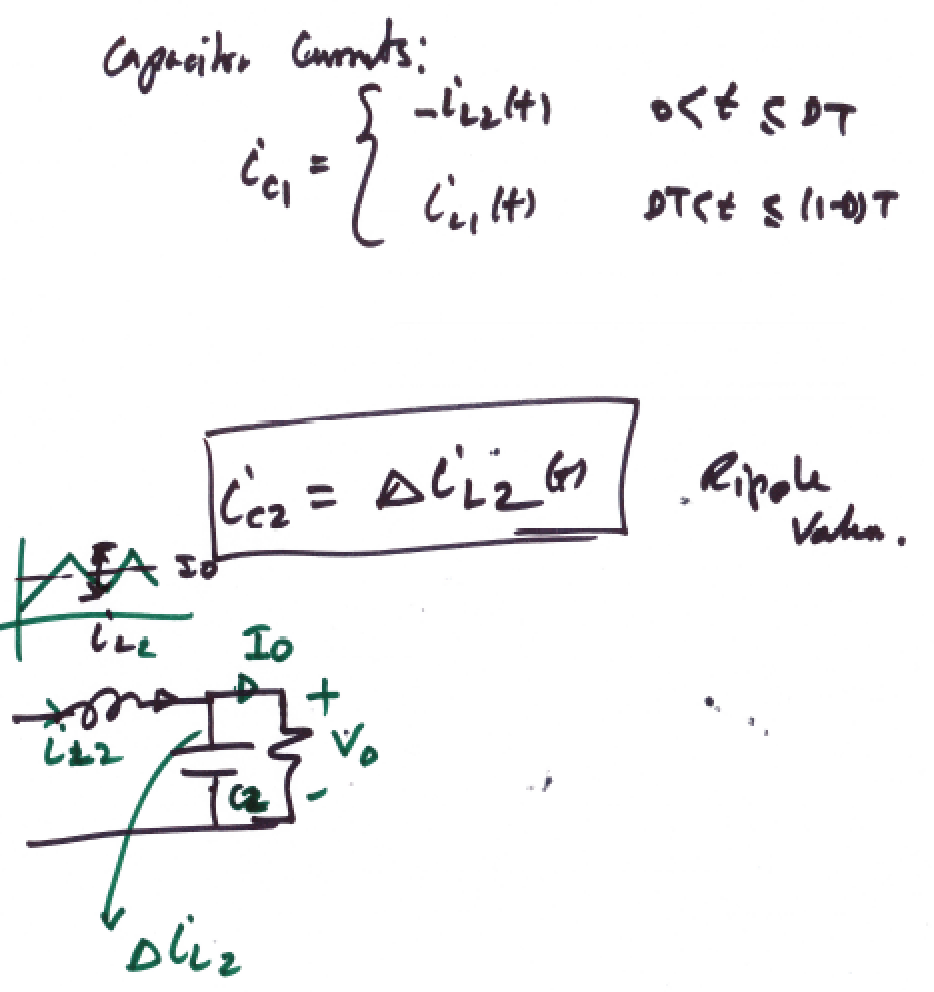 Capacitor Currents:
i_C1 = { -i_L2(t) 0 < t ≤ DT
i_L1(t) DT < t ≤ (1-D)T
i_C2 = Δi_L2(t)
Ripple
Value.
I0
i_L2
I0
i_L2
+
V0
C2
-
Δi_L2